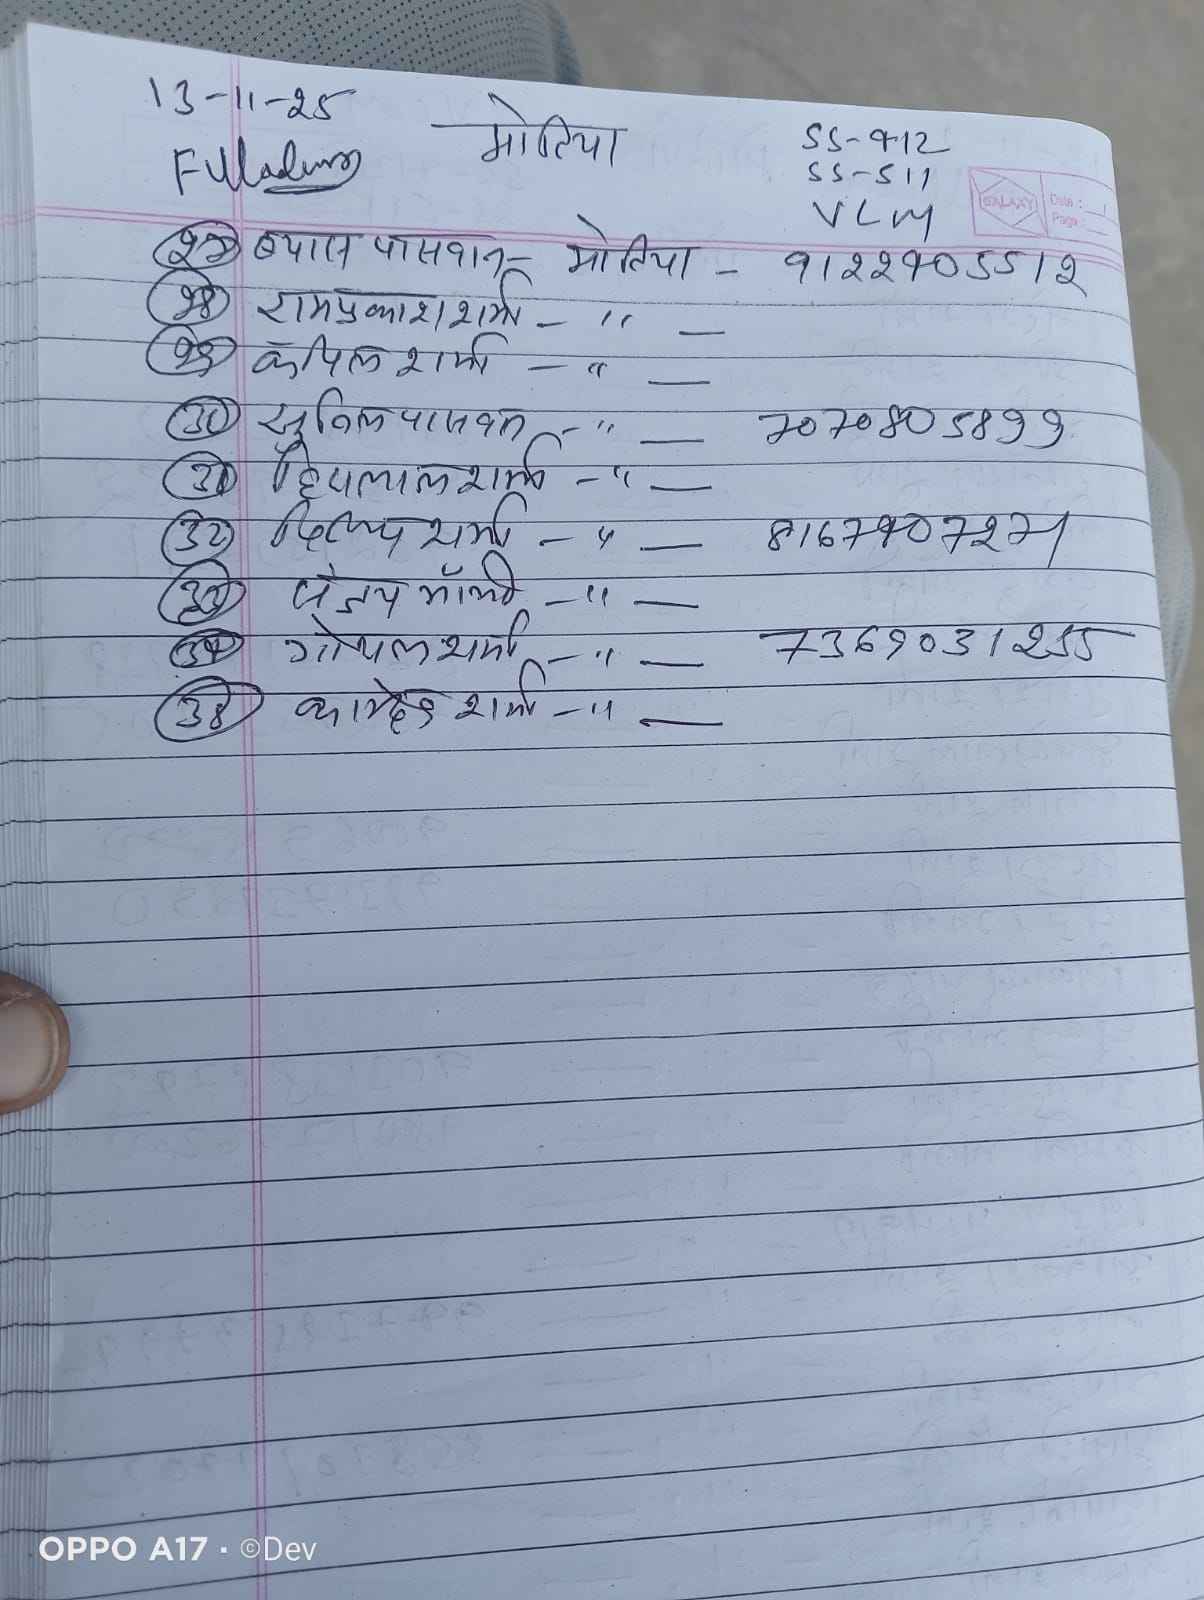 13-11-25
मोतिया
SS-912
SS-511
VLM
GALAXY
Date :
Page :
(27) ब्यास पासवान - मोतिया - 9122905512
(28) रामप्रकाश शर्मा - " —
(29) कपिल शर्मा - " —
(30) सुनिल पासवान - " — 7070805899
(31) शर्मा - " —
(32) दिलीप शर्मा - " — 8167907271
(33) संजय - " —
(34) गोपाल शर्मा - " — 7369031255
शर्मा - " —
OPPO A17 · ©Dev